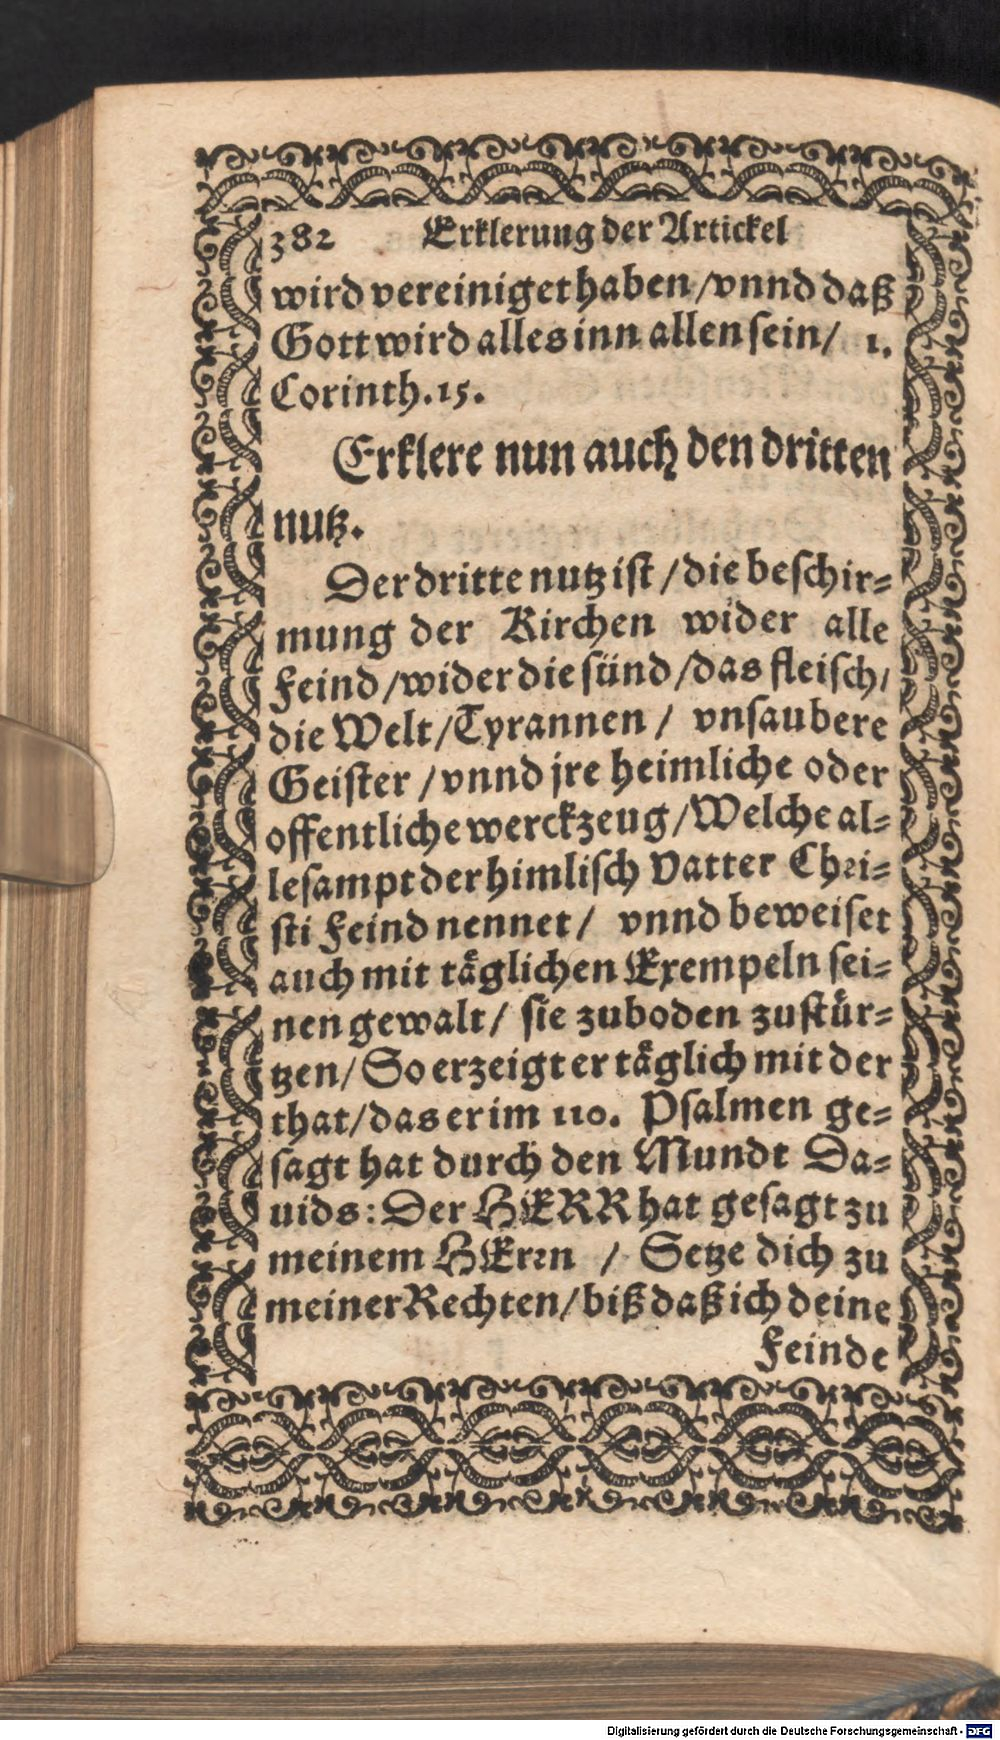 382 Erklerung der Artickel
wird vereiniget haben / vnnd daß
Gott wird alles inn allen sein / 1.
Corinth. 15.
Erklere nun auch den dritten
nutz.
Der dritte nutz ist / die beschir-
mung der Kirchen wider alle
Feind / wider die sünd / das fleisch /
die Welt / Tyrannen / vnsaubere
Geister / vnnd jre heimliche oder
offentliche werckzeug / Welche al-
lesampt der himlisch Vatter Chri-
sti Feind nennet / vnnd beweiset
auch mit täglichen Exempeln sei-
nen gewalt / sie zuboden zustür-
tzen / So erzeigt er täglich mit der
that / das er im 110. Psalmen ge-
sagt hat durch den Mundt Da-
uids: Der HERR hat gesagt zu
meinem HErrn / Setze dich zu
meiner Rechten / biß daß ich deine
Feinde
Digitalisierung gefördert durch die Deutsche Forschungsgemeinschaft - DFG